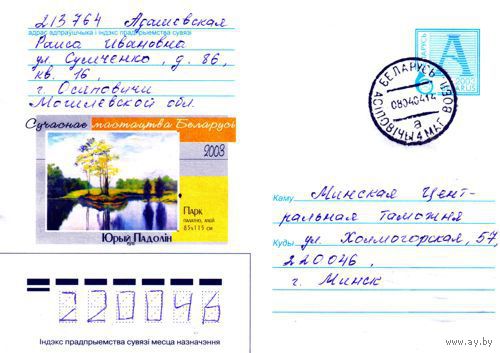 213764 Адашевская
адрас адпраўшчыка і індэкс прадпрыемства сувязі
Раиса Ивановна
ул Сумченко, д. 86,
кв. 16,
г. Осиповичи
Могилевской обл.
Сучаснае мастацтва Беларусі
2003
Парк
палатно, алей
85x115 см
Юрый Падолін
А
БЕЛАРУСЬ
АСІПОВІЧЫ 4 МАГ. ВОБЛ
080404 14
а
Каму Минская Цент-
ральная таможня
Куды ул. Холмогорская, 57,
220046.
г. Минск
220046
Індэкс прадпрыемства сувязі месца назначэння
www.ay.by